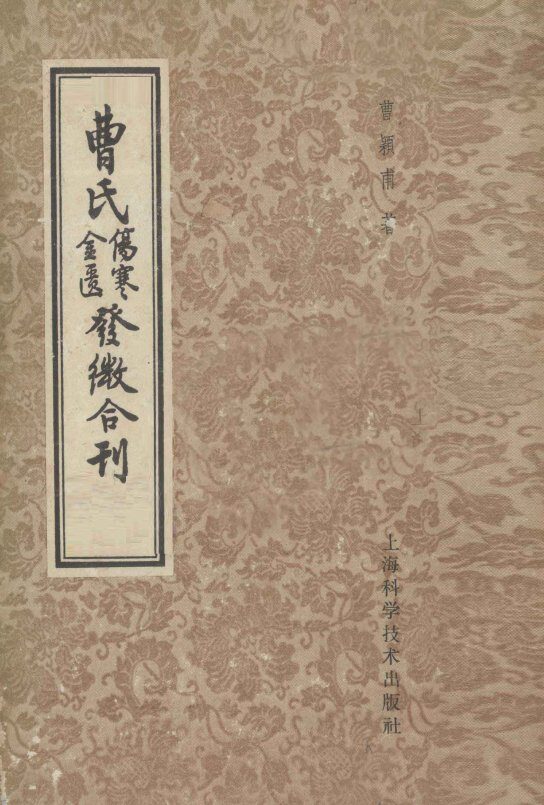 曹氏傷寒金匱發微合刊
曹穎甫 著
上海科学技术出版社